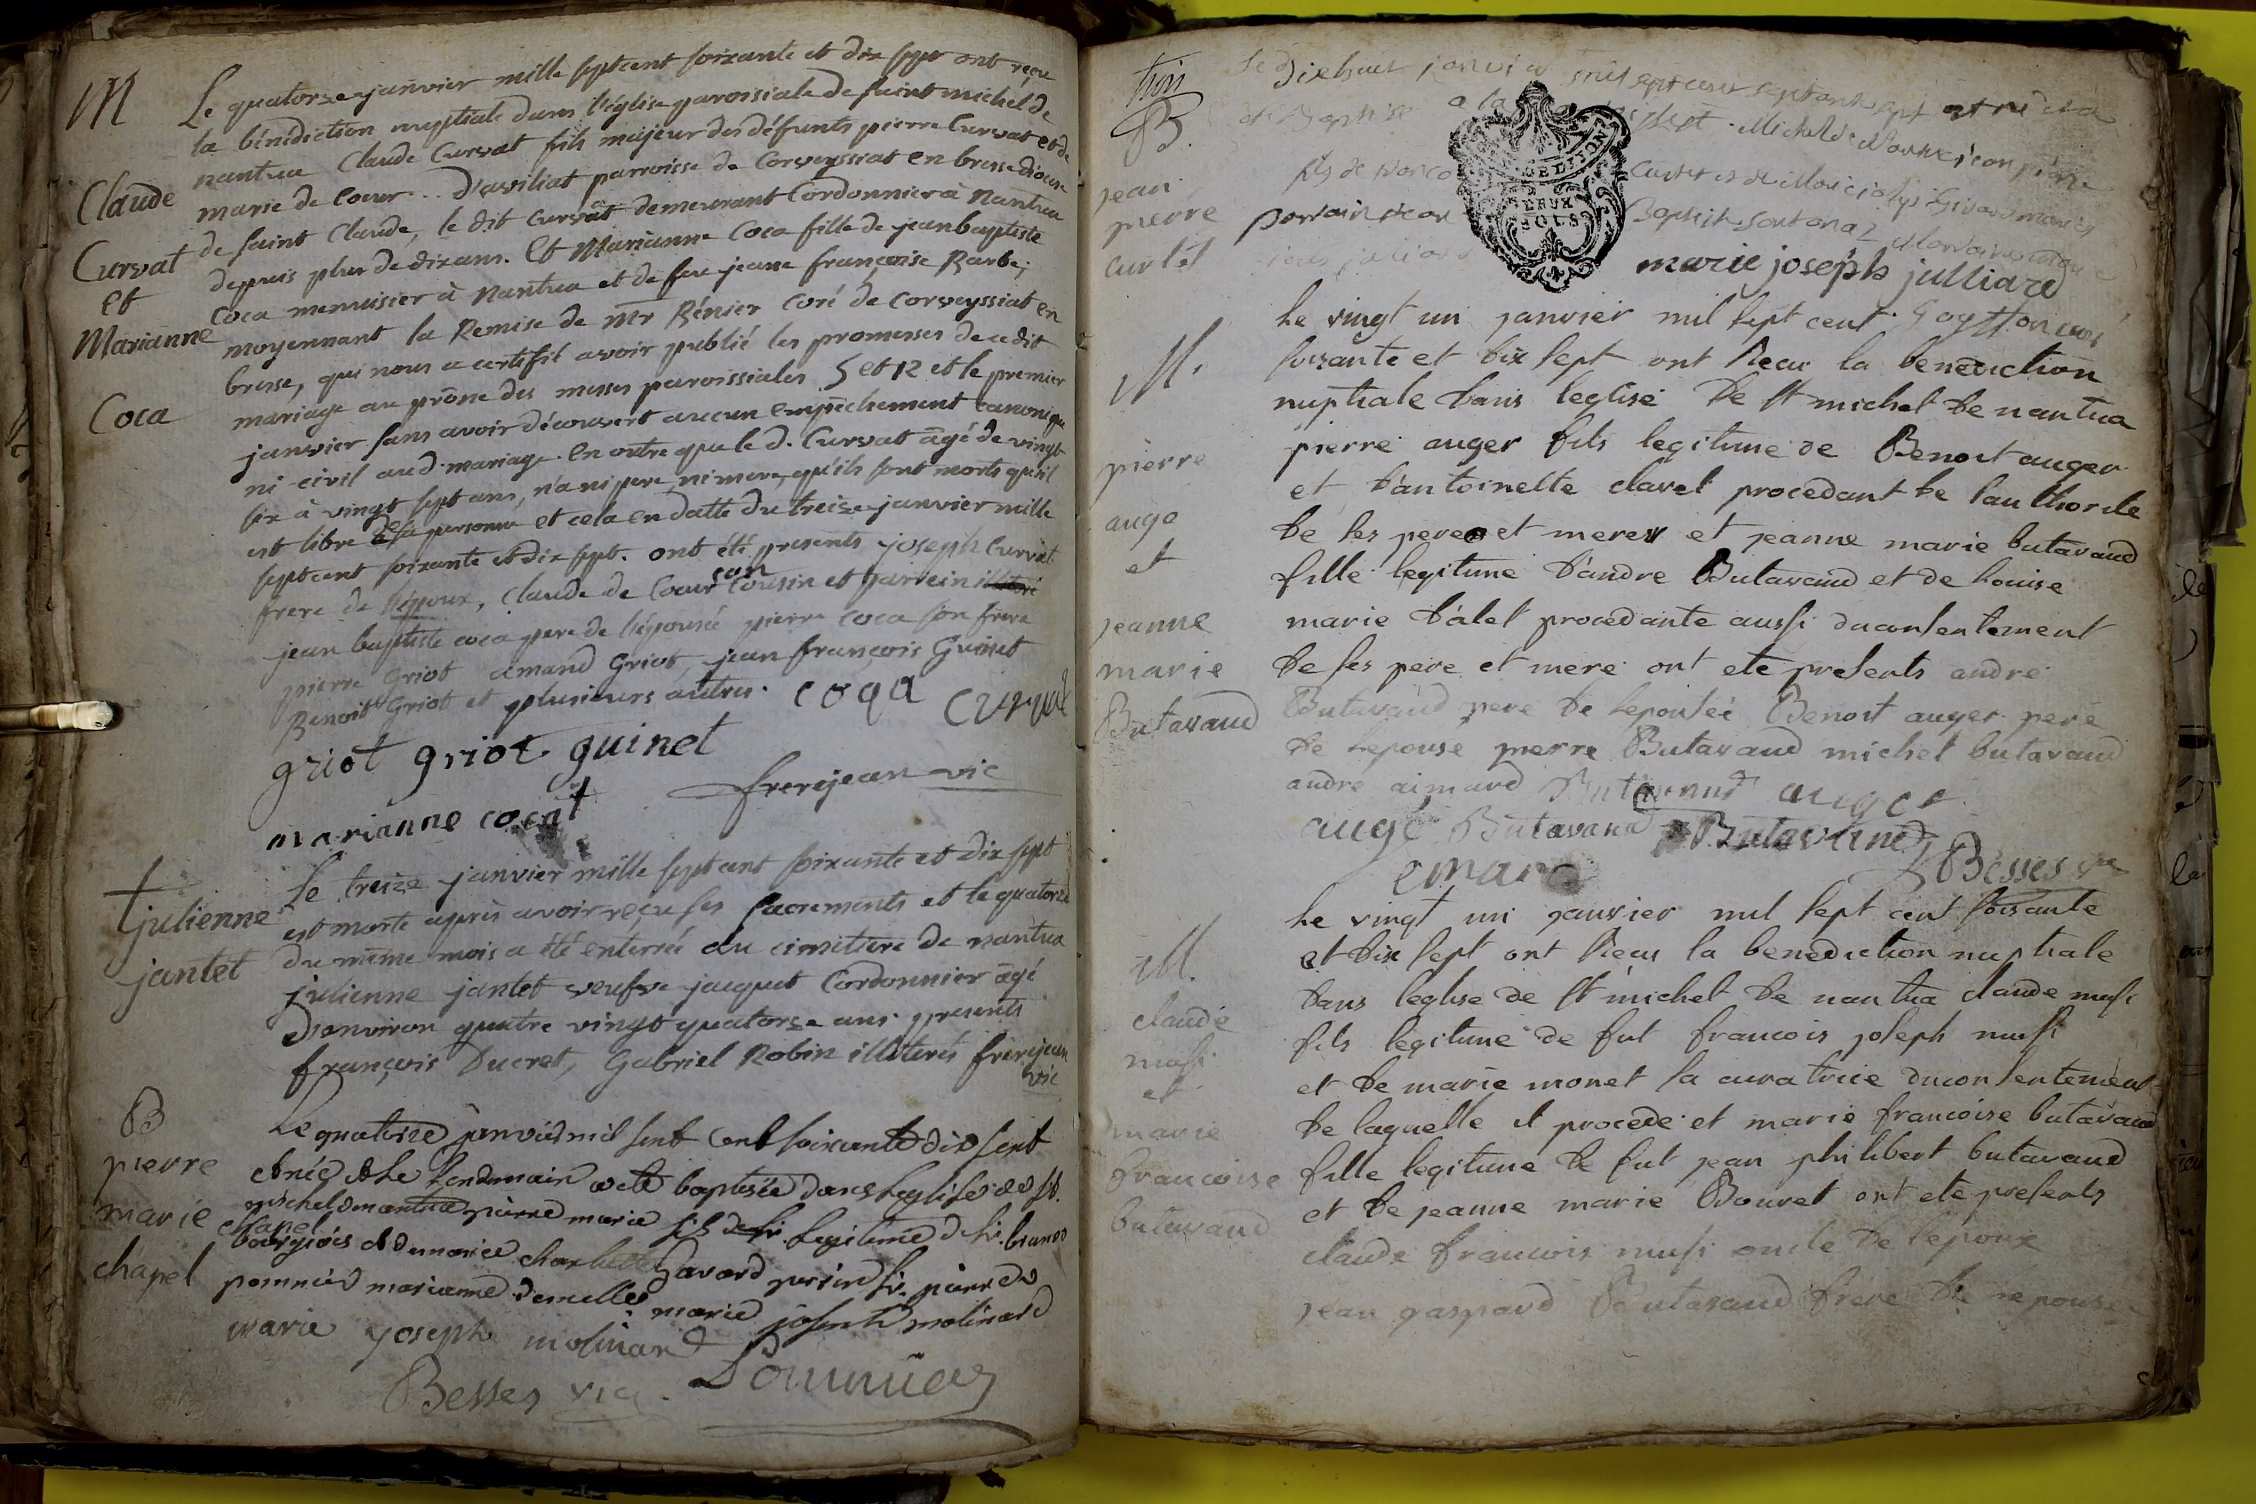 M
Claude
Curvat
et
Marianne
Coca
Le quatorze janvier mille septcent soixante et dix sept ont reçu
la bénédiction nuptiale dans l'église paroissiale de saint michel de
nantua Claude Curvat fils majeur des défunts pierre Curvat et de
marie de Coeur .. d'aviliat parroisse de Corveyssiat en bresse diocese
de saint Claude, le dit Curvat demeurant Cordonnier à Nantua
depuis plus de dix ans. Et Marianne Coca fille de jean baptiste
Coca menuisier à Nantua et de feu jeane françoise Barbe;
moyennant la Remise de Mr Rénier Coré de Corveyssiat en
bresse, qui nous a certifié avoir publié les promesses de cedit
mariage au prône des messes paroissiales 5 et 12 et le premier
janvier sans avoir découvert aucun empêchement canonique
ni civil aud. mariage. en outre que le d. Curvat âgé de vingt
six à vingt sept ans, n'a ni pere ni mere, qu'ils sont morts qu'il
est libre de sa personne et cela en datte du treize janvier mille
septcent soixante et dix sept. ont été presents joseph Curvat
frere de l'époux, Claude de Coeur son Cousin et parrein
jean baptiste coca pere de l'épouse pierre Coca son frere
pierre Griot amand Griot, jean françois Guinet
Benoit Griot et plusieurs autres. coqa curvat
griot griot guinet
frerejean vic
marianne cocat
† julienne
jantet
Le treize janvier mille septcent soixante et dix sept
est morte après avoir reçu ses sacrements et le quatorze
du même mois a été enterrée au cimitiere de nantua
julienne jantet veufve jacquet Cordonnier âgé
d'environ quatre vingt quatorze ans. presents
françois Ducret, Gabriel Robin illiterés frerejean
vic
B
pierre
marie
chapel
Le quatorze janvier mil sept cent soixante dix sept
est né et le lendemain a eté baptisée dans l'eglise de st.
michel de nantua pierre marie fils de legitime de sr.
chapel
bourgeois et de marie charlotte Savard parin sr. pierre
pommier marianne demelle marie joseph molinard
marie joseph molinard
Besses vic. Pommier
trois
B.
jean
pierre
curtet
Le dixhuit janvier mil sept cent septante sept
et baptisé a la
fils de
parrain jean Baptiste
marie joseph julliard
M.
pierre
auge
et
jeanne
marie
Butavaud
Le vingt un janvier mil sept cent
soixante et dix sept ont recu la benediction
nuptiale dans leglise de st michel de nantua
pierre auger fils legitime de Benoit auger
et d'antoinette clavel procedant de l'authorite
de ses pere et mere et jeanne marie butavaud
fille legitime d'andre Butavaud et de Louise
marie d'alet procedante aussi du consentement
de ses pere et mere ont ete presents andre
Butavaud pere de lepousée Benoit auger pere
de lepousé pierre Butavaud michel butavaud
andre aimard Butavaud auger
augé Butavand Butavand
emard Besses vic
M.
claude
musi
et
marie
francoise
butavaud
Le vingt un janvier mil sept cent soisante
et dix sept ont recu la benediction nuptiale
dans leglise de st michel de nantua claude musi
fils legitime de fut francois joseph musi
et de marie monet sa curatrice du consentement
de laquelle il procede et marie francoise butavaud
fille legitime de fut jean philibert butavaud
et de jeanne marie Bouvet ont ete presents
claude francois musi oncle de l'epoux
jean gaspard Butavaud frere de l'epouse